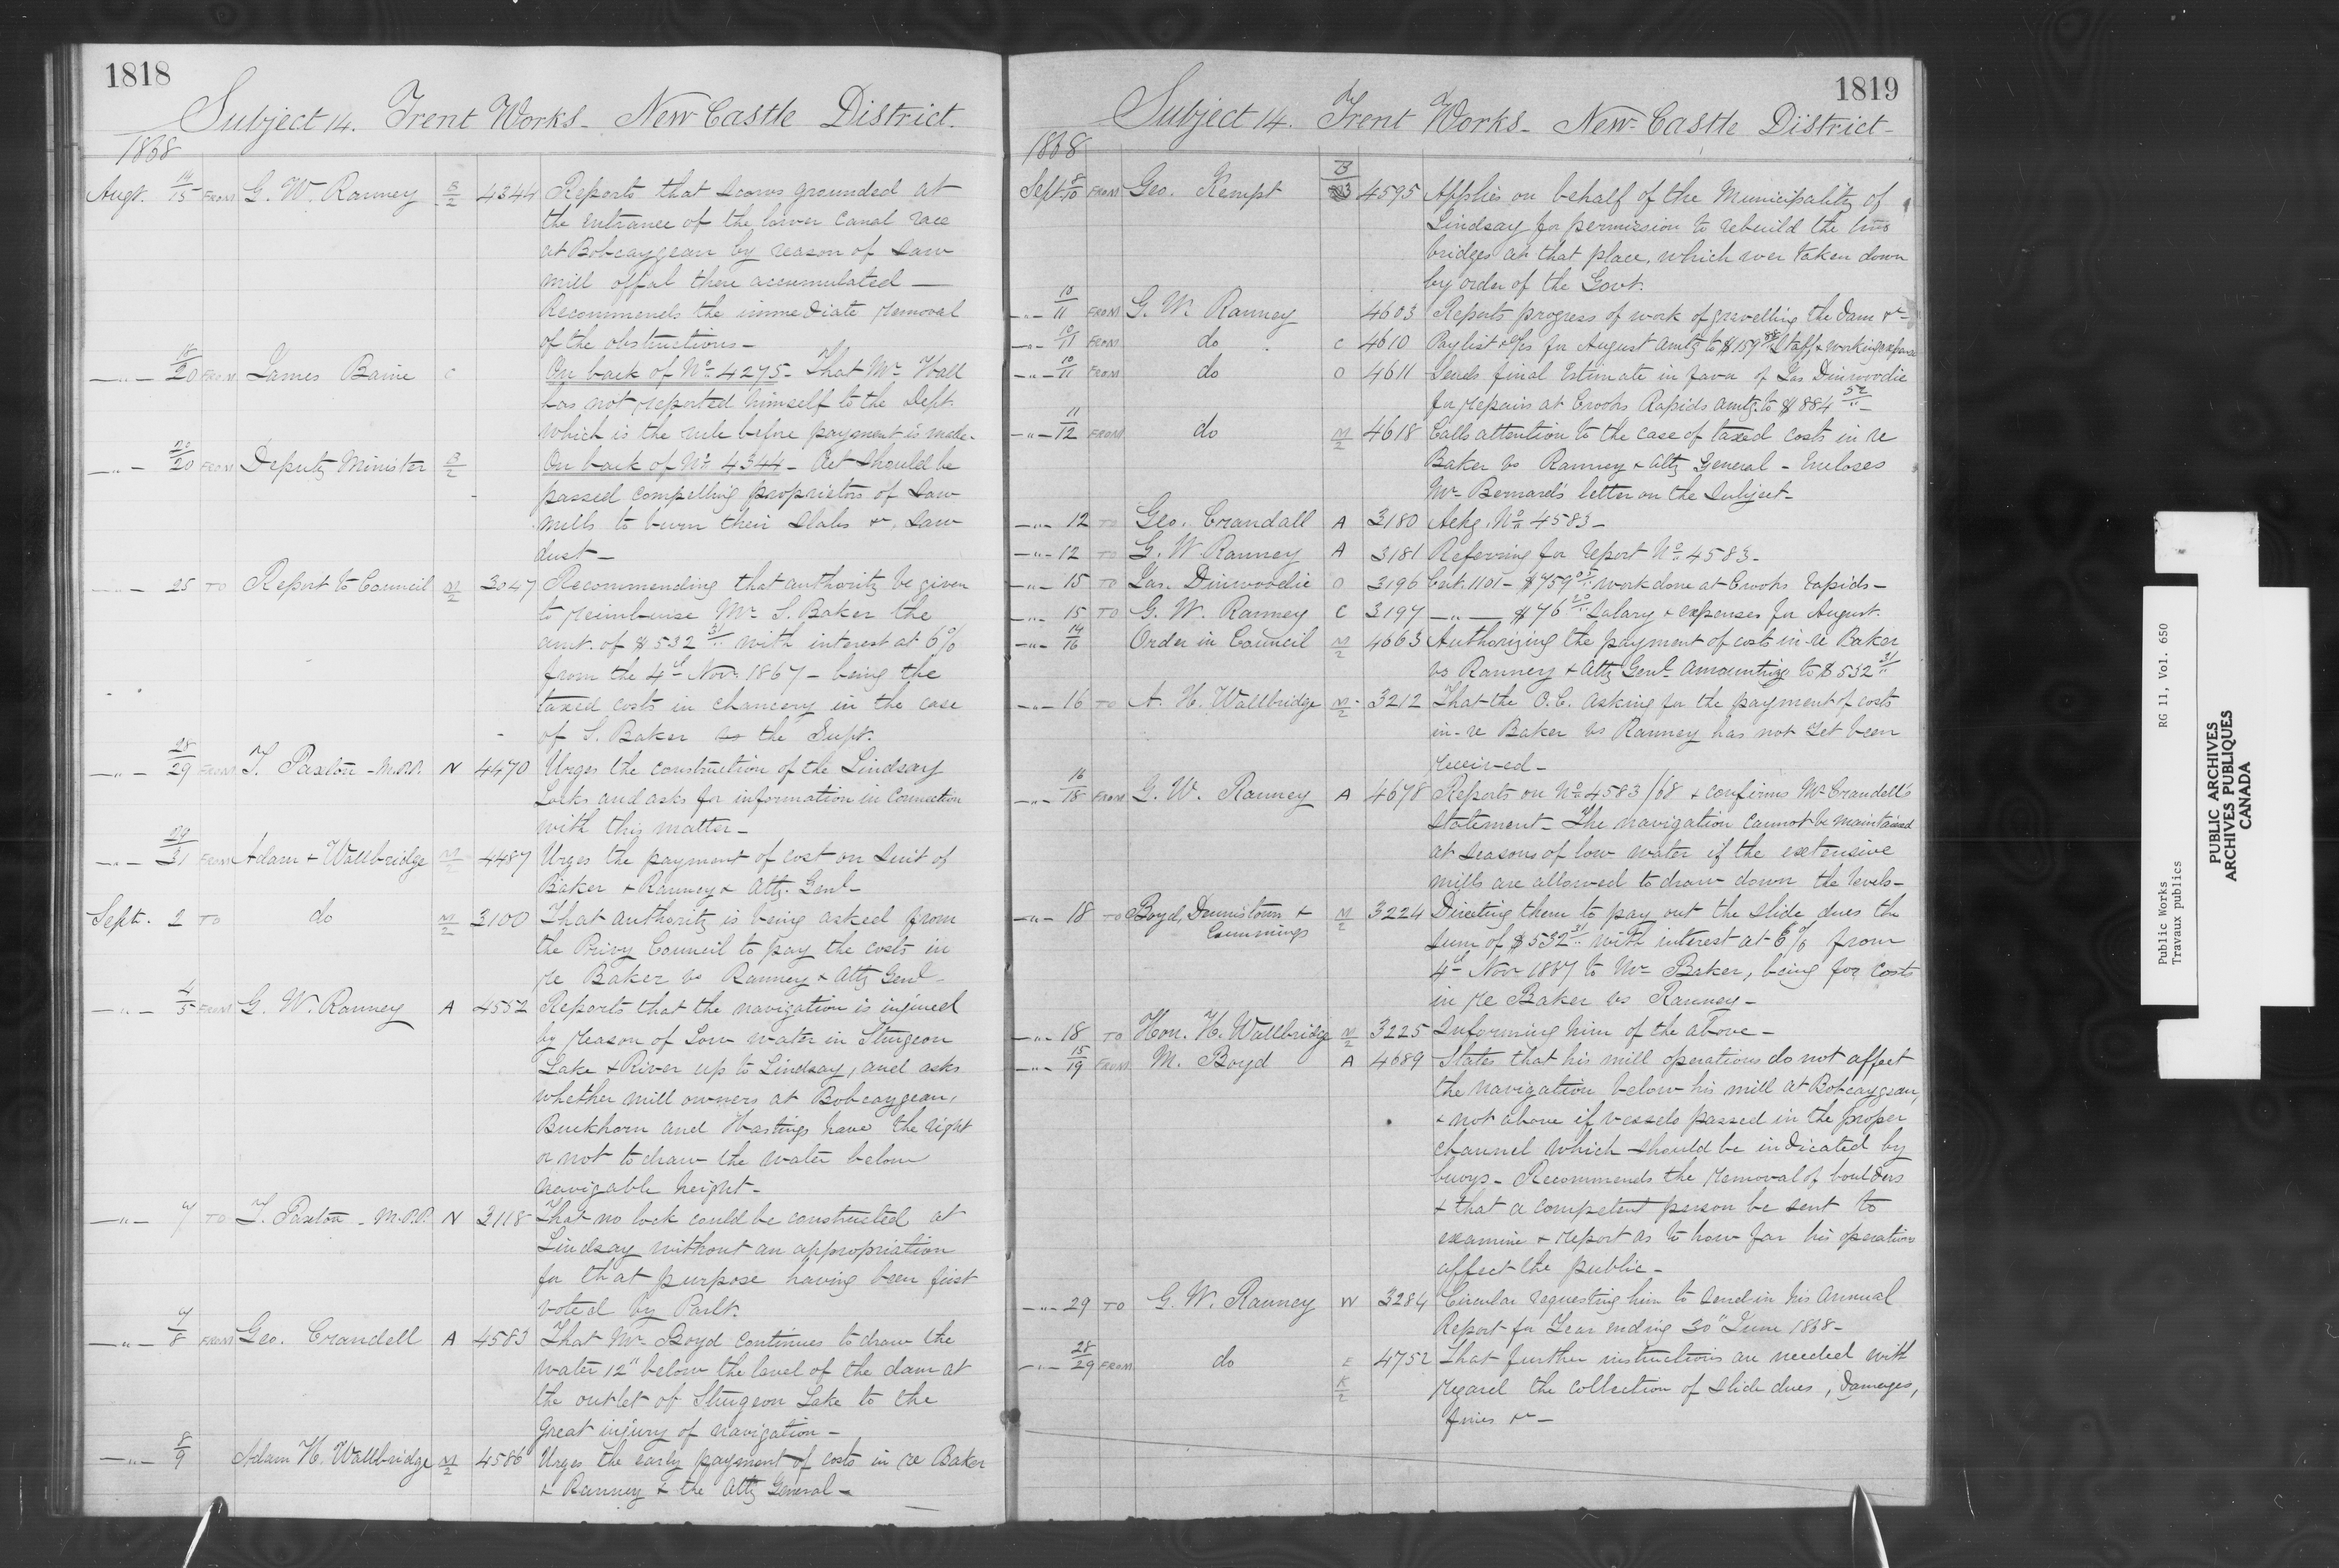 1818
Subject 14. Trent Works - New Castle District.
1868
Augt. 14/15 FROM G. W. Ranney B/2 4344 Reports that scows grounded at
the entrance of the lower canal race
at Bobcaygean by reason of saw
mill offal there accumulated —
Recommends the immediate removal
of the obstructions -
—"— 18/20 FROM James Baine C On back of No. 4275 - That Mr Hall
has not reported himself to the Dept.
which is the rule before payment is made.
—"— 20/20 FROM Deputy Minister B/2 On back of No. 4344 - Act should be
passed compelling proprietors of saw
mills to burn their slabs &c, saw
dust -
—"— 25 TO Report to Council M/2 3047 Recommending that authority be given
to reimburse Mr. S. Baker the
amt. of $532 31/.. with interest at 6%
from the 4th Nov. 1867 - being the
taxed costs in chancery in the case
of S. Baker vs the Supt.
—"— 28/29 FROM T. Paxton - M.P.P. N 4470 Urges the construction of the Lindsay
Locks and asks for information in connection
with this matter -
—"— 29/31 FROM Adam & Wallbridge M/2 4487 Urges the payment of cost on suit of
Baker & Ranney & Atty. Genl -
Sept. 2 TO do M/2 3100 That authority is being asked from
the Privy Council to pay the costs in
re Baker vs Ranney & Atty Genl -
—"— 4/5 FROM G. W. Ranney A 4552 Reports that the navigation is injured
by reason of Low water in Sturgeon
Lake & River up to Lindsay, and asks
whether mill owners at Bobcaygean,
Buckhorn and Hastings have the right
or not to draw the water below
navigable height -
—"— 4 TO T. Paxton - M.P.P. N 3118 That no lock could be constructed at
Lindsay without an appropriation
for that purpose having been first
voted by Parlt.
—"— 4/8 FROM Geo. Crandell A 4583 That Mr Boyd continues to draw the
water 12" below the level of the dam at
the outlet of Sturgeon Lake to the
Great injury of navigation -
—"— 8/9 Adam H. Wallbridge M/2 4586 Urges the early payment of costs in re Baker
& Ranney & the Atty General -
1819
Subject 14. Trent Works - New-Castle District -
1868
Sept. 8/10 FROM Geo. Kempt B/3 4595 Applies on behalf of the Municipality of
Lindsay for permission to rebuild the two
bridges at that place, which wer taken down
by order of the Govt.
—"— 10/11 FROM G. W. Ranney 4603 Reports progress of work of gravelling the Dam &c -
—"— 10/11 FROM do C 4610 Paylist & for August amtg to $159 88/.. Staff & working expenses
—"— 10/11 FROM do O 4611 Sends final Estimate in favor of Jas Dinwoodie
for repairs at Crooks Rapids amtg. to $884 52/.. -
—"— 11/12 FROM do M/2 4618 Calls attention to the case of taxed costs in re
Baker vs Ranney & Atty General - Encloses
Mr. Bernard's letter on the subject -
—"— 12 TO Geo. Crandall A 3180 Ackg. No. 4583 -
—"— 12 TO G. W. Ranney A 3181 Referring for report No. 4583 -
—"— 15 TO Jas. Dinwoodie O 3196 Cert. 1101 - $759 05/.. work done at Crooks Rapids -
—"— 15 TO G. W. Ranney C 3197 —"— $76 20/.. Salary & expenses for August.
—"— 14/16 Order in Council M/2 4663 Authorizing the payment of costs in-re Baker
vs Ranney & Atty Genl. amounting to $532 31/..
—"— 16 TO A. H. Wallbridge M/2 3212 That the O.C. asking for the payment of costs
in-re Baker vs Ranney has not yet been
received -
—"— 16/18 FROM G. W. Ranney A 4678 Reports on No. 4583/68 & confirms Mr Crandell's
statement - The navigation cannot be maintained
at seasons of low water if the extensive
mills are allowed to draw down the levels -
—"— 18 TO Boyd, Dennistoun &
Cummings M/2 3224 Directing them to pay out the slide dues the
sum of $532 31/.. with interest at 6% from
4th Nov 1867 to Mr Baker, being for costs
in re Baker vs Ranney -
—"— 18 TO Hon. H. Wallbridge M/2 3225 Informing him of the above -
—"— 15/19 FROM M. Boyd A 4689 States that his mill operations do not affect
the navigation below his mill at Bobcaygean,
& not above if vessels passed in the proper
channel which should be indicated by
buoys - Recommends the removal of boulders
& that a competent person be sent to
examine & report as to how far his operations
affect the public -
—"— 29 TO G. W. Ranney W 3284 Circular requesting him to send in his Annual
Report for Year ending 30" June 1868 -
—"— 28/29 FROM do E K/2 4752 That further instructions are needed with
regard the collection of slide dues, Damages,
fines &c -
Public Works RG 11, Vol. 650
Travaux publics
PUBLIC ARCHIVES
ARCHIVES PUBLIQUES
CANADA